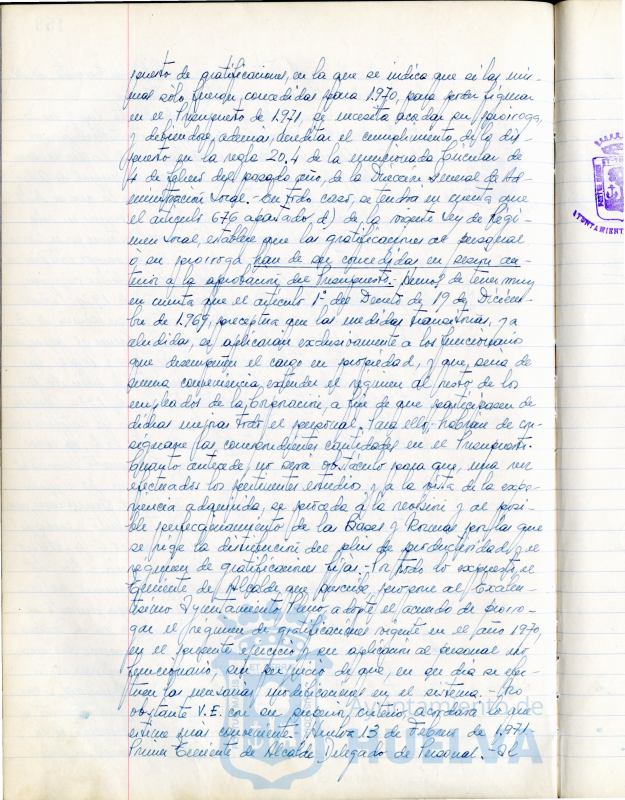 puesto de gratificaciones, en la que se indica que si las mis-
mas sólo fueron concedidas para 1.970, para poder figurar
en el Presupuesto de 1.971, se necesita acordar su prórroga,
y debiendo, además, acreditar el cumplimiento de lo dis-
puesto en la regla 20.4 de la mencionada Circular de
de del pasado año, de la Dirección General de Ad-
ministración Local.- En todo caso, se tendrá en cuenta que
el artículo 676 apartado d) de la vigente Ley de Régi-
men Local, establece que las gratificaciones al personal
o su prórroga han de ser concedidas en sesión an-
terior a la aprobación del Presupuesto.- Hemos de tener muy
en cuenta que el artículo 1º del Decreto de 19 de Diciem-
bre de 1.969, preceptúa que las medidas transitorias, ya
aludidas, se aplicarán exclusivamente a los funcionarios
que desempeñen el cargo en propiedad, y que, sería de
suma conveniencia, extender el régimen al resto de los
empleados de la Corporación, a fin de que participasen de
dichas mejoras todo el personal. Para ello, habrían de con-
signarse las correspondientes cantidades en el Presupuesto.
Cuanto antecede no será obstáculo para que, una vez
efectuados los pertinentes estudios, y a la vista de la expe-
riencia adquirida, se proceda a la revisión y al posi-
ble perfeccionamiento de las Bases y Normas por las que
se rige la distribución del plus de productividad y el
régimen de gratificaciones fijas.- Por todo lo expuesto, el
Teniente de Alcalde que suscribe propone al Excelen-
tísimo Ayuntamiento Pleno, adopte el acuerdo de prorro-
gar el régimen de gratificaciones vigente en el año 1970,
en el presente ejercicio y su aplicación al personal no
funcionario, sin perjuicio de que, en su día se efec-
túen las necesarias modificaciones en el sistema.- No
obstante V.E. con su superior criterio, acordará lo que
estime más conveniente.- Huelva 13 de Febrero de 1.971.-
Primer Teniente de Alcalde Delegado de Personal.-
Ayuntamiento de
HUELVA
AYUNTAMIENT